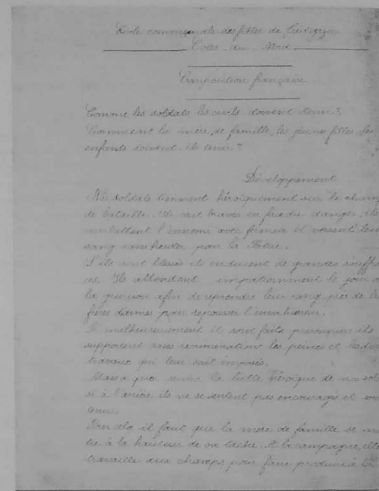 Ecole communale des filles de
Côtes du Nord
Composition française
Comme les soldats les civils doivent tenir ?
Comment la mère de famille, les jeunes filles, les
enfants doivent-ils tenir ?
Développement
Nos soldats tiennent héroïquement sur le champ
de bataille. Ils sont braves en face du danger, ils
combattent l'ennemi avec fermeté et versent leur
sang sans hésiter pour la Patrie.
S'ils sont blessés ils endurent de grandes souffran
ces. Ils attendent impatiemment le jour de
la guérison afin de reprendre leur rang près de leurs
frères d'armes pour repousser l'envahisseur.
Si malheureusement ils sont faits prisonniers ils
supportent sans récrimination les peines et les durs
travaux qui leur sont imposés.
Mais à quoi servira la lutte héroïque de nos sol
si à l'arrière ils ne se sentent pas encouragés et sou
tenus.
Pour cela il faut que la mère de famille se mon
tre à la hauteur de sa tâche. A la campagne, elle
travaille aux champs pour faire produire à la